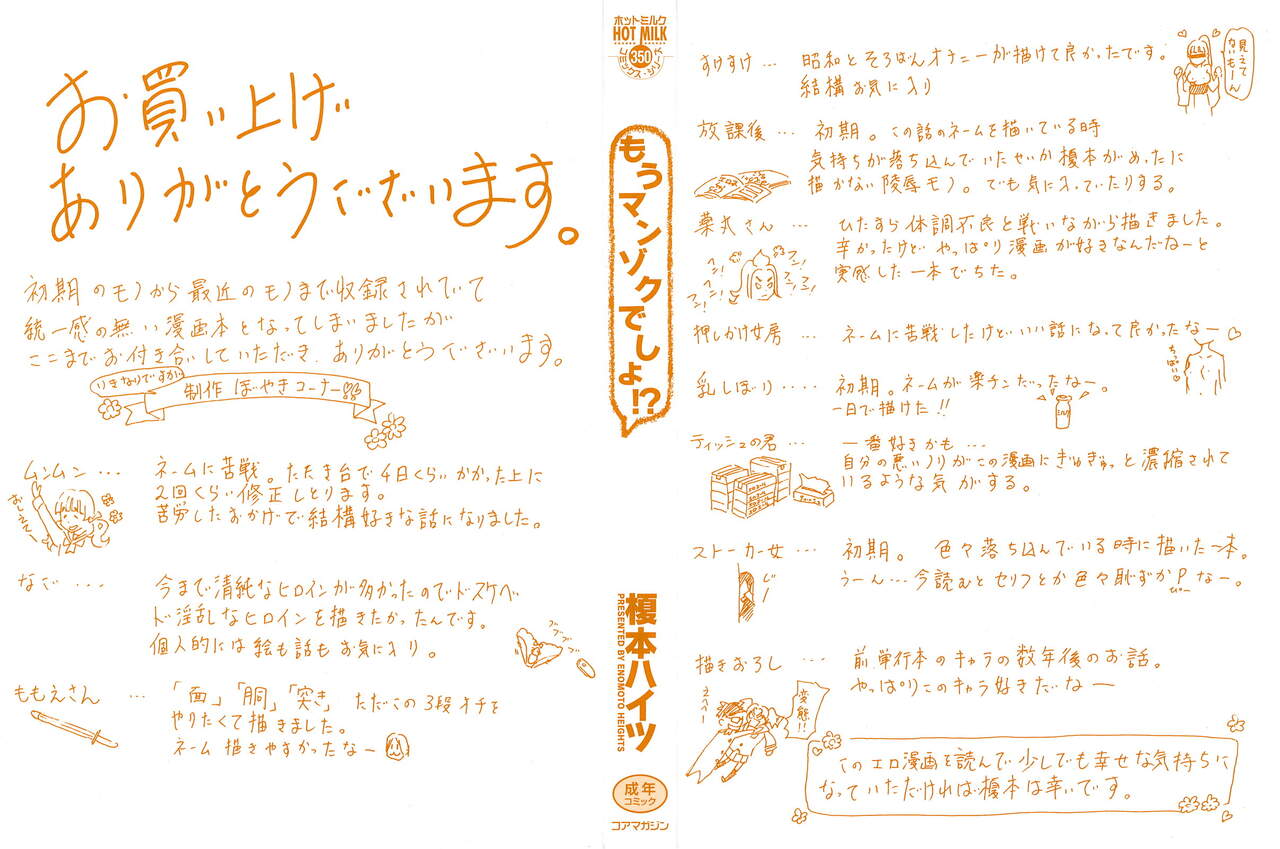 お買い上げ
ありがとうございます。
初期のモノから最近のモノまで収録されていて
統一感の無い漫画本となってしまいましたが
ここまでお付き合いしていただき、ありがとうございます。
いきなりですが
制作 ぼやきコーナー
ムンムン…
ネームに苦戦。たたき台で4日くらいかかった上に
2回くらい修正しとります。
苦労したおかげで結構好きな話になりました。
おしえてー
なご…
今まで清純なヒロインが多かったのでドスケベ
ド淫乱なヒロインを描きたかったんです。
個人的には絵も話もお気に入り。
ブブブブ
ももえさん…
「面」「胴」「突き」ただこの3段オチを
やりたくて描きました。
ネーム描きやすかったなー
ホットミルク
HOT MILK
コミックス・シリーズ
350
もうマンゾクでしょ!?
榎本ハイツ
PRESENTED BY ENOMOTO HEIGHTS
成年
コミック
コアマガジン
すけすけ…
昭和とそろばんオナニーが描けて良かったです。
結構お気に入り
見えて
ないもーん
放課後…
初期。この話のネームを描いている時
気持ちが落ち込んでいたせいか榎本がめったに
描かない陵辱モノ。でも気に入っていたりする。
薬丸さん…
ひたすら体調不良と戦いながら描きました。
辛かったけど やっぱり漫画が好きなんだなーと
実感した一本でちた。
フン!
フン!
フン!
フン!
押しかけ女房…
ネームに苦戦したけどいい話になって良かったなー♡
ちっぱい♡
乳しぼり‥‥
初期。ネームが楽チンだったなー。
一日で描けた!!
ティッシュの君…
一番好きかも…
自分の悪いノリがこの漫画にぎゅぎゅっと濃縮されて
いるような気がする。
ストーカー女…
初期。色々落ち込んでいる時に描いた一本。
うーん…今読むとセリフとか色々恥ずかPなー。
ぴー
じー
描きおろし…
前単行本のキャラの数年後のお話。
やっぱりこのキャラ好きだなー
変態!!
えへへー
このエロ漫画を読んで少しでも幸せな気持ちに
なっていただければ榎本は幸いです。